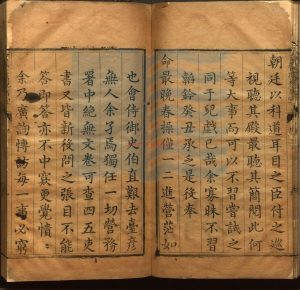 朝廷以科道耳目之臣付之巡
視聽其殿最聽其簡閱此何
等大事而可以不習嘗試之
同于兒戲已哉余寡昧不習
韜鈐癸丑承乏是役奉
命最晚春操僅一二進營茫如
也會侍御史伯直艱去臺彥
無人余孑焉獨任一切營務
署中絕無文卷可查四五吏
書又皆新役問之張目不能
答即答亦不中窾更覺憒〻
余乃廣詢博訪每一事必窮